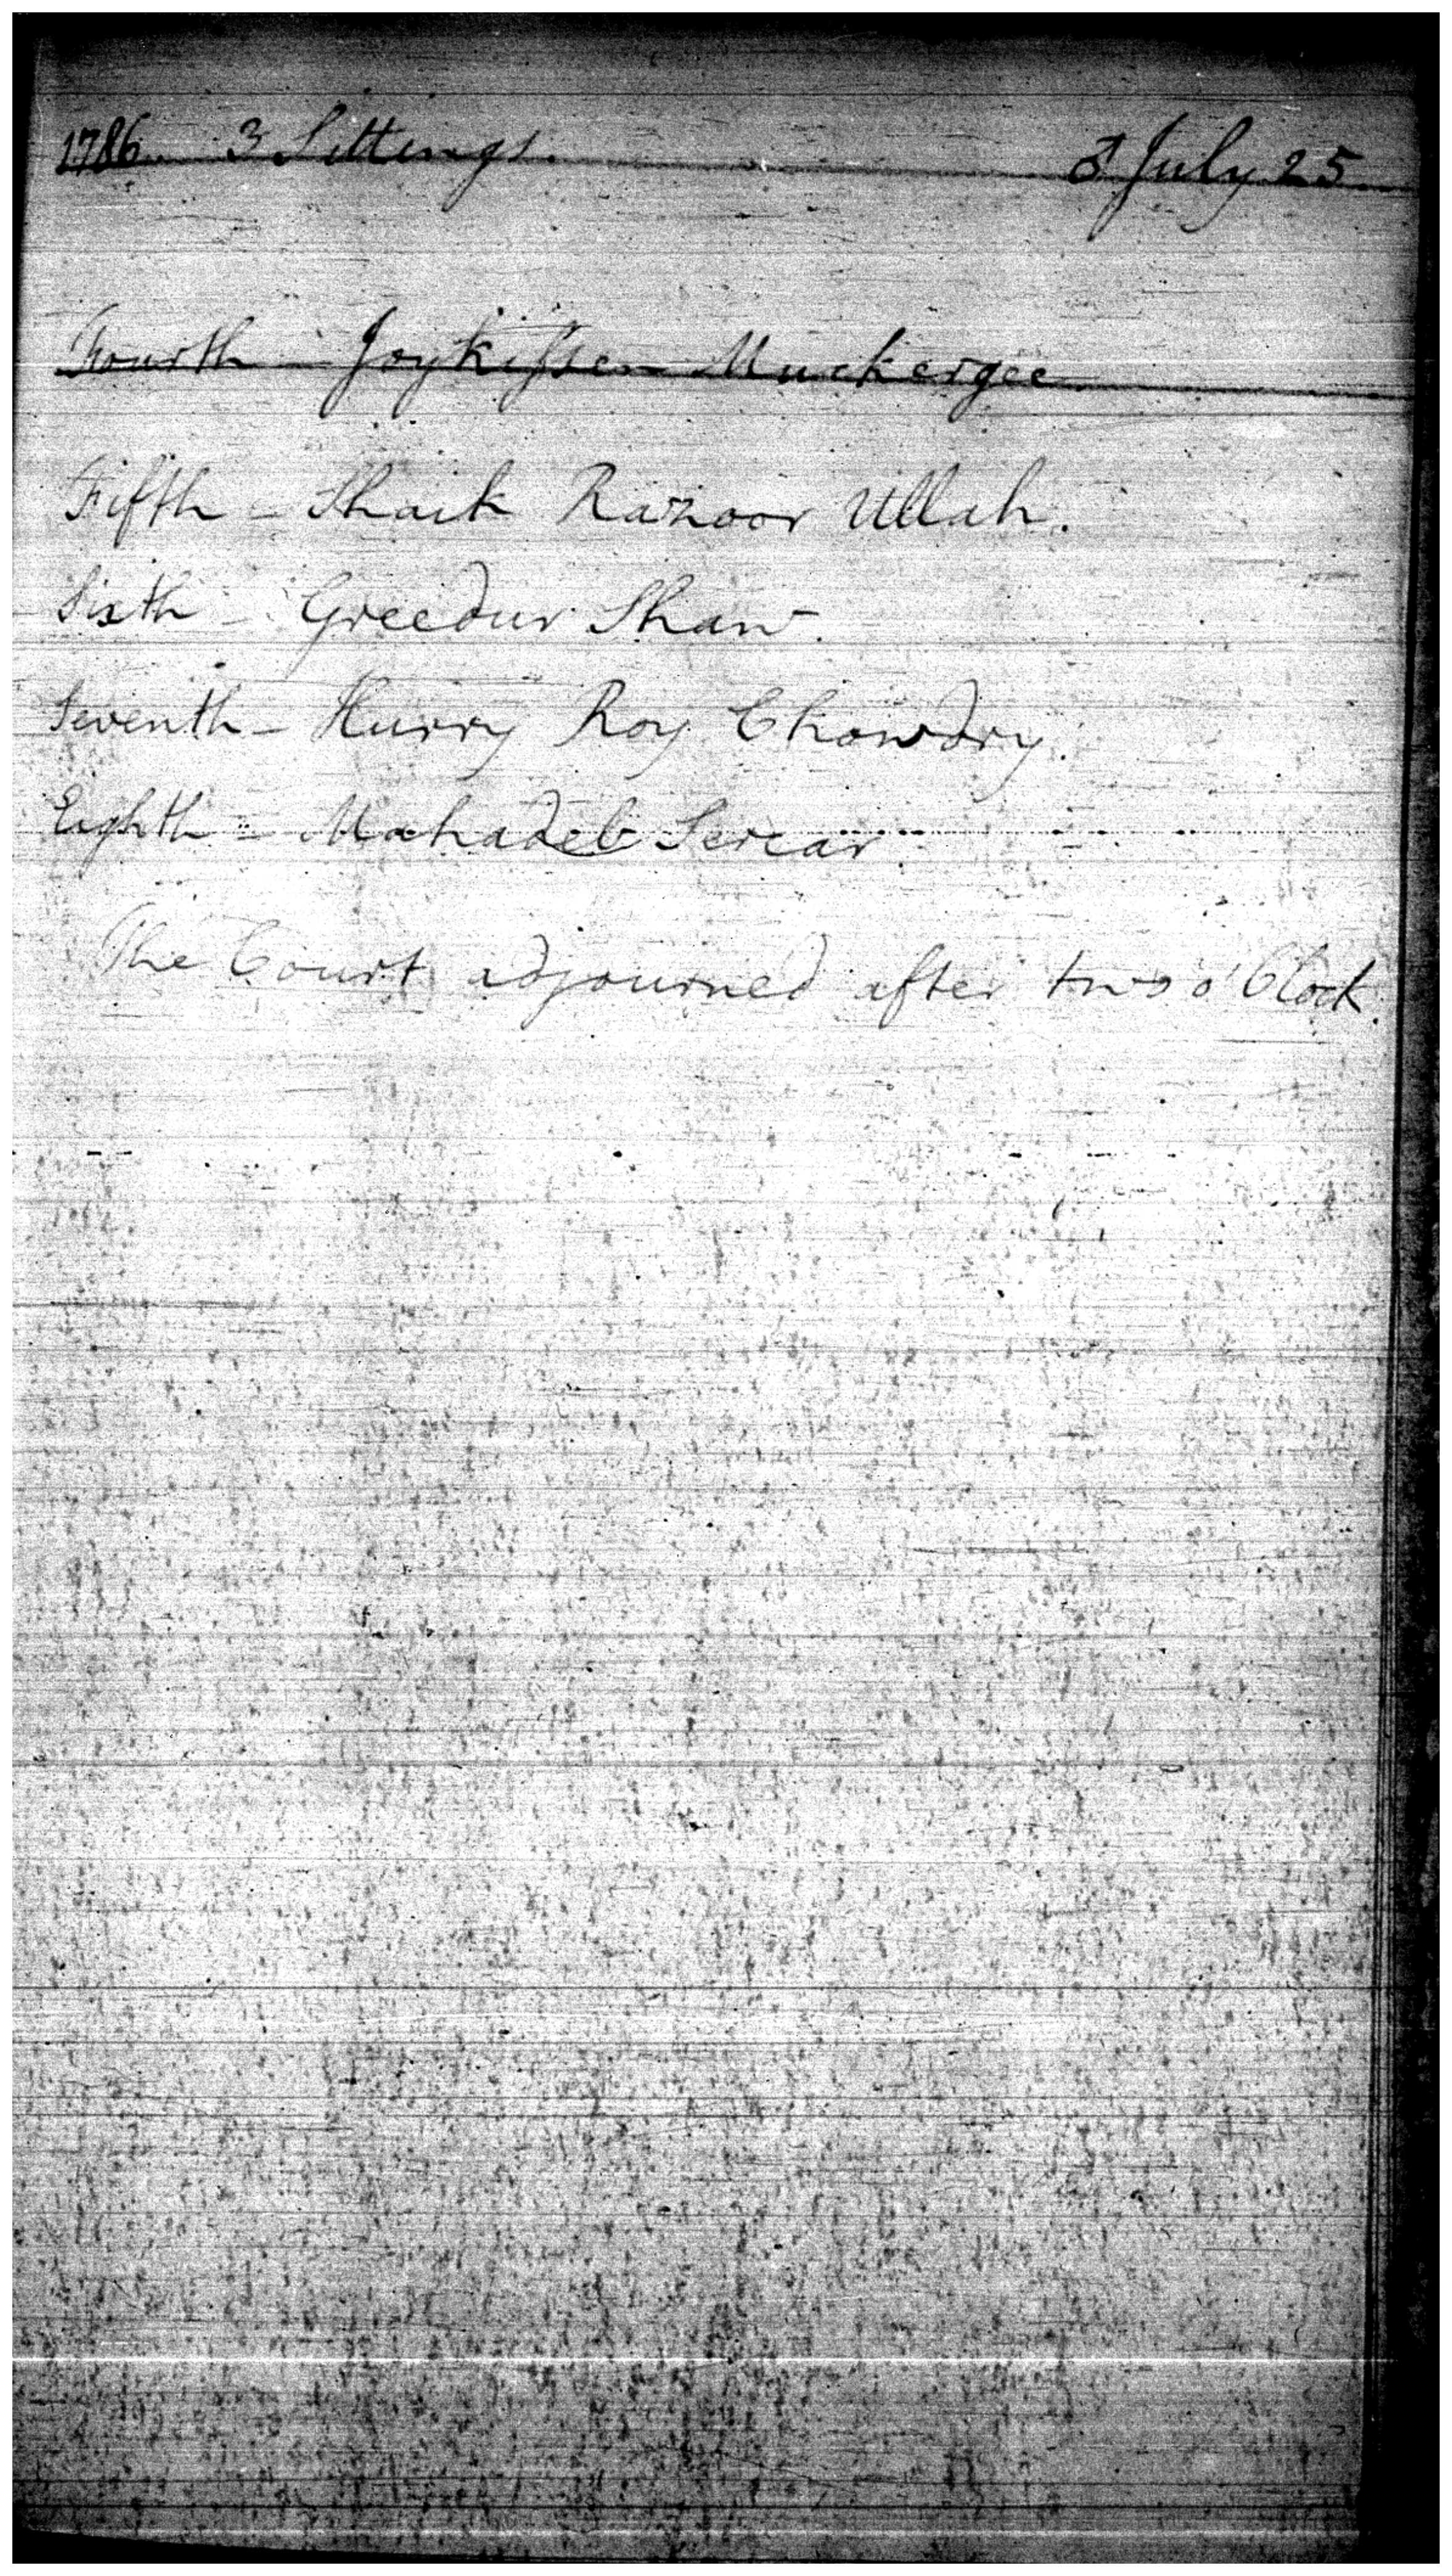 1786. 3 Sittings. ♂ July 25.
Fourth - Joykissen Muckergee
Fifth - Shaik Razoor Ullah.
Sixth - Greedur Shaw.
Seventh - Hurry Roy Chowdry.
Eighth - Mahadeb Sercar.
The Court adjourned after two o'Clock.